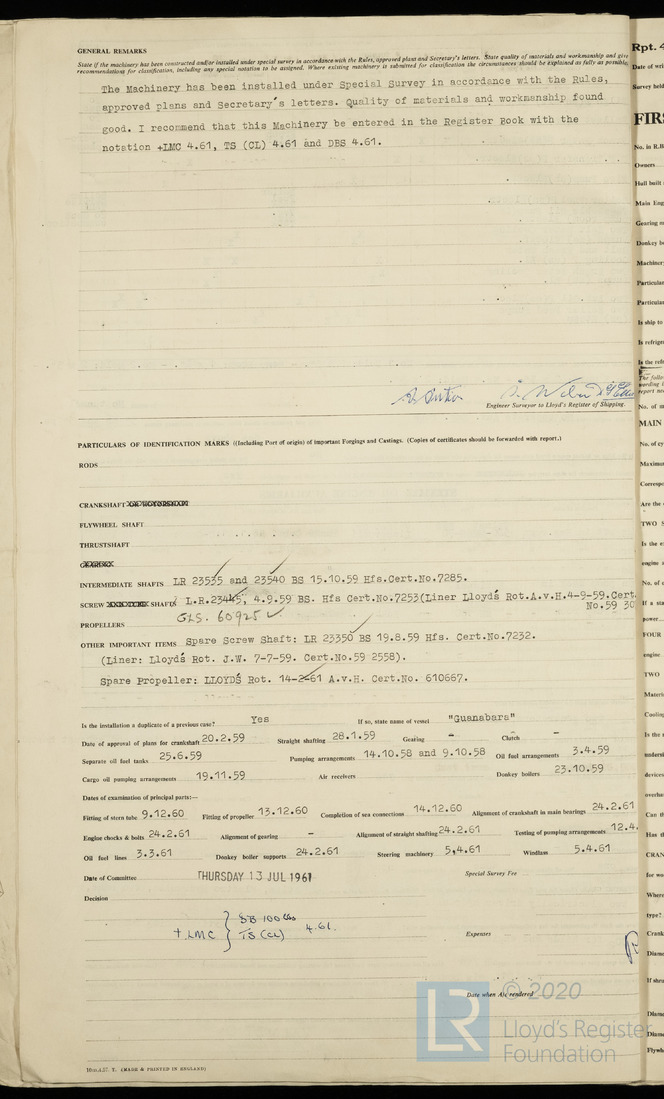 GENERAL REMARKS
State if the machinery has been constructed and/or installed under special survey in accordance with the Rules, approved plans and Secretary's letters. State quality of materials and workmanship and give
recommendations for classification, including any special notation to be assigned. Where existing machinery is submitted for classification the circumstances should be explained as fully as possible
The Machinery has been installed under Special Survey in accordance with the Rules,
approved plans and Secretary's letters. Quality of materials and workmanship found
good. I recommend that this Machinery be entered in the Register Book with the
notation +LMC 4.61, TS (CL) 4.61 and DBS 4.61.
Engineer Surveyor to Lloyd's Register of Shipping.
PARTICULARS OF IDENTIFICATION MARKS ((Including Port of origin) of important Forgings and Castings. (Copies of certificates should be forwarded with report.)
RODS
CRANKSHAFT
FLYWHEEL SHAFT
THRUSTSHAFT
INTERMEDIATE SHAFTS LR 23535 and 23540 BS 15.10.59 Hfs.Cert.No.7285.
SCREW SHAFTS L.R.23445, 4.9.59 BS. Hfs Cert.No.7253(Liner Lloyds Rot.A.v.H.4-9-59.Cert.
No.59 30
PROPELLERS GLS. 60925
OTHER IMPORTANT ITEMS Spare Screw Shaft: LR 23350 BS 19.8.59 Hfs. Cert.No.7232.
(Liner: Lloyds Rot. J.W. 7-7-59. Cert.No.59 2558).
Spare Propeller: LLOYDS Rot. 14-2-61 A.v.H. Cert.No. 610667.
Is the installation a duplicate of a previous case? Yes If so, state name of vessel "Guanabars"
Date of approval of plans for crankshaft 20.2.59 Straight shafting 28.1.59 Gearing - Clutch -
Separate oil fuel tanks 25.6.59 Pumping arrangements 14.10.58 and 9.10.58 Oil fuel arrangements 3.4.59
Cargo oil pumping arrangements 19.11.59 Air receivers Donkey boilers 23.10.59
Dates of examination of principal parts:—
Fitting of stern tube 9.12.60 Fitting of propeller 13.12.60 Completion of sea connections 14.12.60 Alignment of crankshaft in main bearings 24.2.61
Engine chocks & bolts 24.2.61 Alignment of gearing - Alignment of straight shafting 24.2.61 Testing of pumping arrangements 12.4.
Oil fuel lines 3.3.61 Donkey boiler supports 24.2.61 Steering machinery 5.4.61 Windlass 5.4.61
Date of Committee THURSDAY 13 JUL 1961 Special Survey Fee
Decision
+ LMC } SB 100 lbs
TS (CL) 4.61.
Expenses
Date when A/c rendered
10m.4.57. T. (MADE & PRINTED IN ENGLAND)
LR © 2020
Lloyd's Register
Foundation
Rpt. 4
Date of wri
Survey held
FIRS
No. in R.B
Owners
Hull built
Main Eng
Gearing
Donkey b
Machiner
Particular
Particular
Is ship to
Is refriger
Is the refr
The follo
wording
report nee
No. of
MAIN
No. of cy
Maximu
Correspo
Are the
TWO S
Is the e
engine
No. of
If a si
power
FOUR
engine
TWO
Materi
Cooling
Is the
underst
devices
overhe
Can th
Has th
CRAN
for wo
Where
type?
Crank
Diame
If shru
Diame
Diame
Flywh